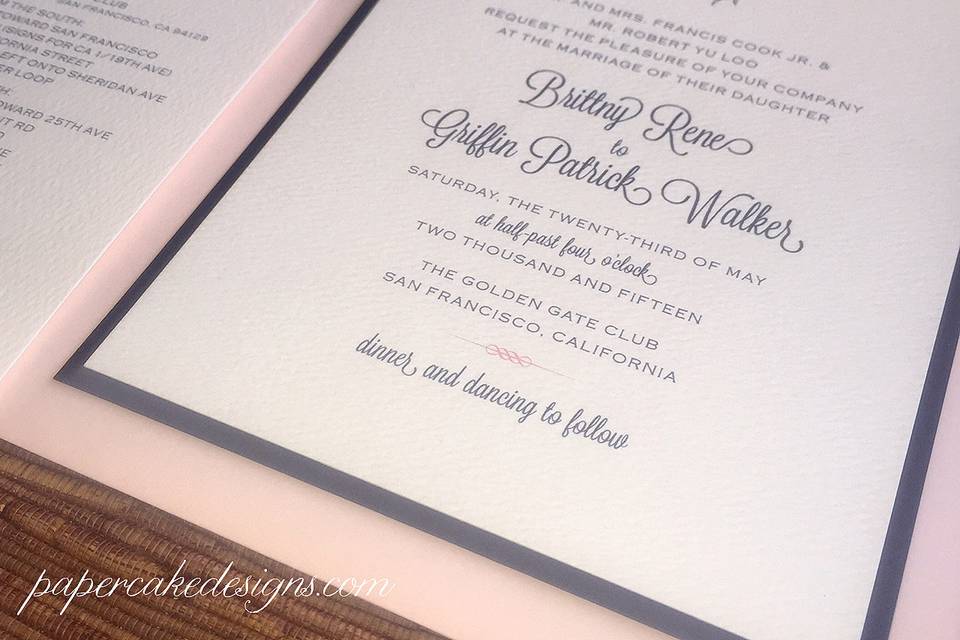 CLUB
SAN FRANCISCO, CA 94129
THE SOUTH:
TOWARD SAN FRANCISCO
(SIGNS FOR CA 1/19TH AVE)
STREET
LEFT ONTO SHERIDAN AVE
LOOP
TOWARD 25TH AVE
RD
AND MRS. FRANCIS COOK JR. &
MR. ROBERT YU LOO
REQUEST THE PLEASURE OF YOUR COMPANY
AT THE MARRIAGE OF THEIR DAUGHTER
Brittny Rene
to
Griffin Patrick Walker
SATURDAY, THE TWENTY-THIRD OF MAY
at half-past four o'clock
TWO THOUSAND AND FIFTEEN
THE GOLDEN GATE CLUB
SAN FRANCISCO, CALIFORNIA
dinner and dancing to follow
papercakedesigns.com